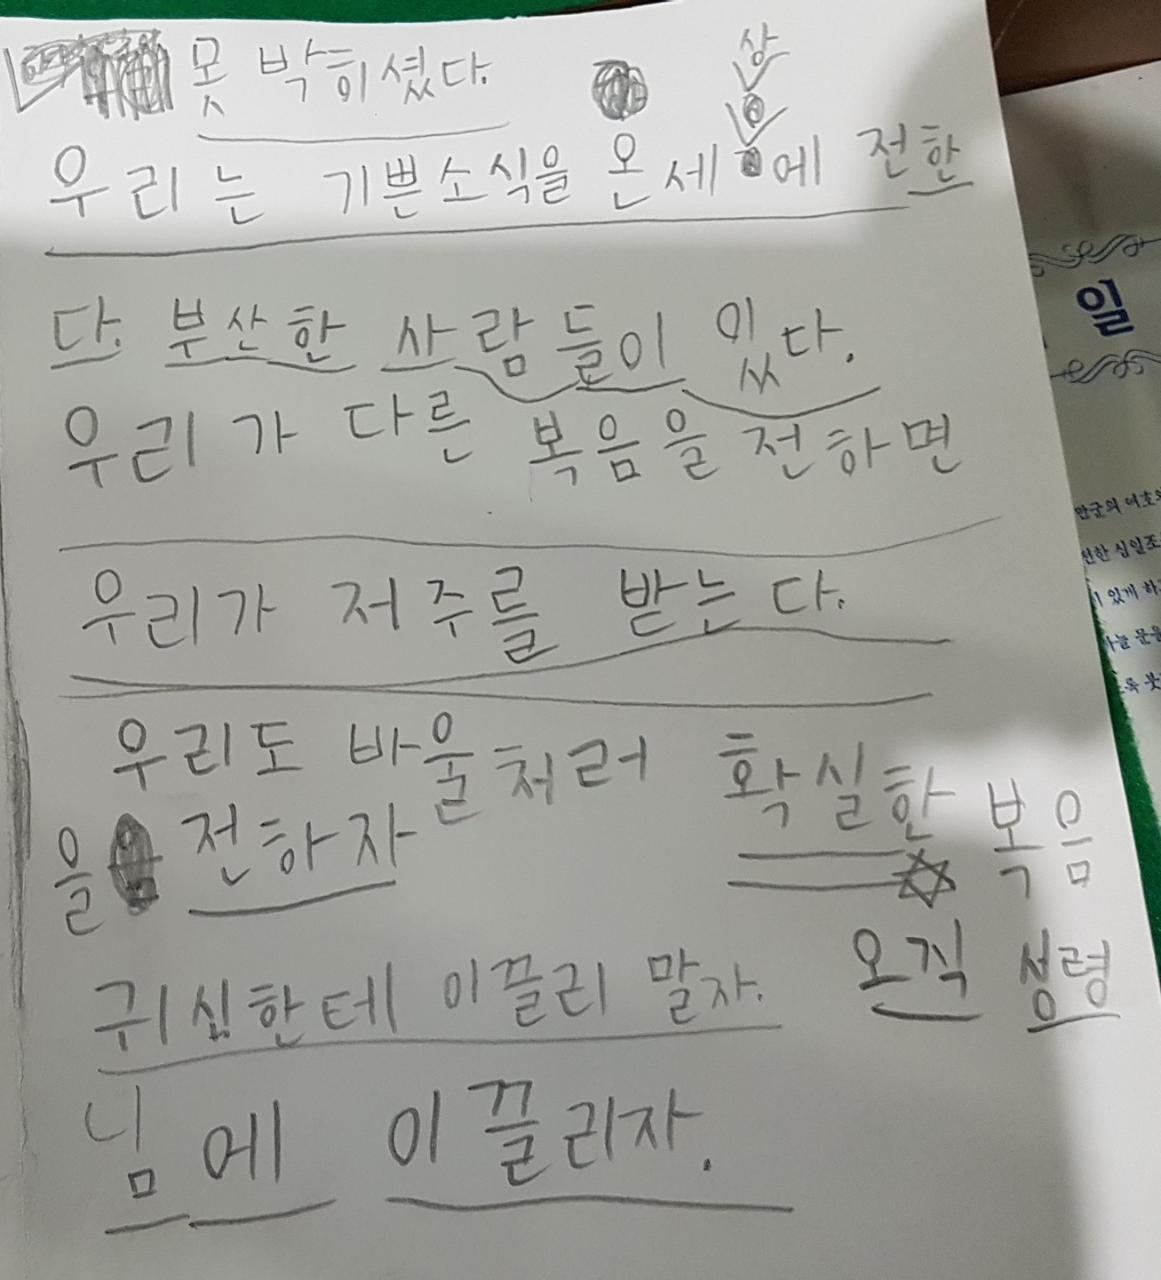 못 박히셨다.
상
우리는 기쁜소식을 온세 에 전한
다. 부산한 사람들이 있다.
우리가 다른 복음을 전하면
우리가 저주를 받는다.
우리도 바울처러 확실한 복음
을 전하자
오직 성령
귀심한테 이끌리 말자.
님에 이끌리자.
일
만군의 여호와
전한 십일조
있게 하